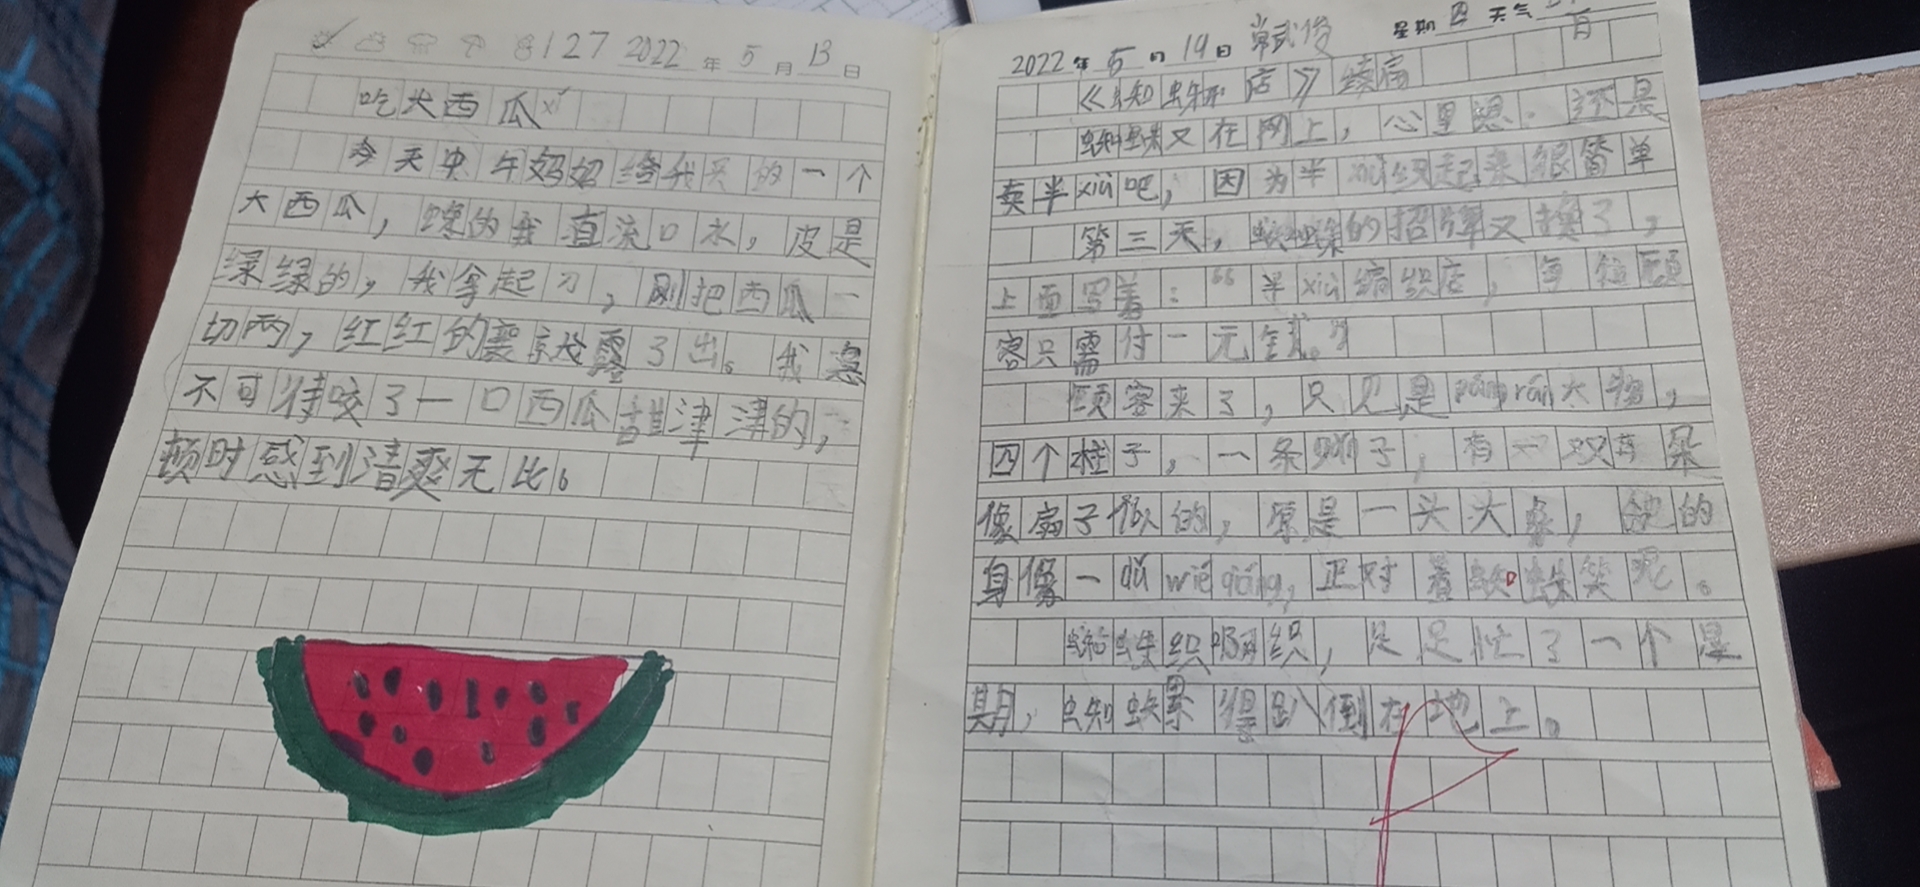 127 2022年5月13日
吃大西瓜
今天中午妈妈给我买的一个
大西瓜，馋的我直流口水，皮是
绿绿的，我拿起刀，刚把西瓜一
切两，红红的瓤就露了出。我急
不可待咬了一口西瓜甜津津的，
顿时感到清爽无比。
2022年5月19日 星期四 天气
《蜘蛛开店》续编
蜘蛛又在网上，心里想：还是
卖半xiù吧，因为半xiù织起来很简单
第三天，蜘蛛的招牌又换了，
上面写着：“半xiù编织店，每位顾
客只需付一元钱。”
顾客来了，只见是páng rán大物，
四个柱子，一条辫子，有一双耳朵
像扇子似的，原是一头大象，他的
身像一dǔ wéi qiáng，正对着蜘蛛笑呢。
蜘蛛织啊织，足足忙了一个星
期，蜘蛛累得趴倒在地上。